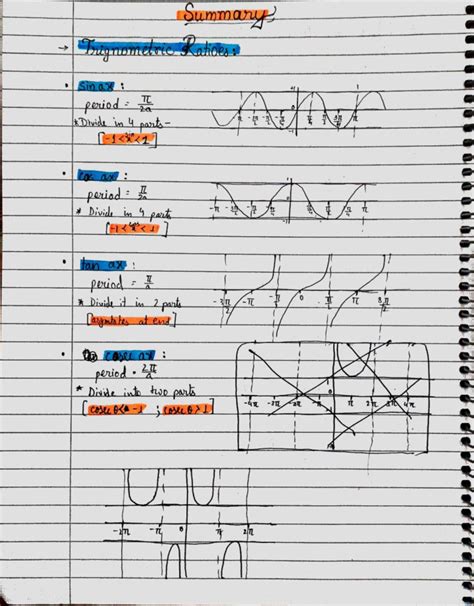 Summary
→ Trignometric Ratioes:
• sin ax :
period = π/2a
* Divide in 4 parts -
[-1 < sin < 1]
• cos ax :
period = π/2a
* Divide in 4 parts
[-1 < cos < 1]
• tan ax :
period = π/a
* Divide it in 2 parts
[asymtotes at end]
• cosec ax :
period = 2π/a
* Divide into two parts
[cosec θ < -1 ; cosec θ > 1]
-4π -3π -2π -π 0 π 2π 3π 4π
-2π -π 0 π 2π